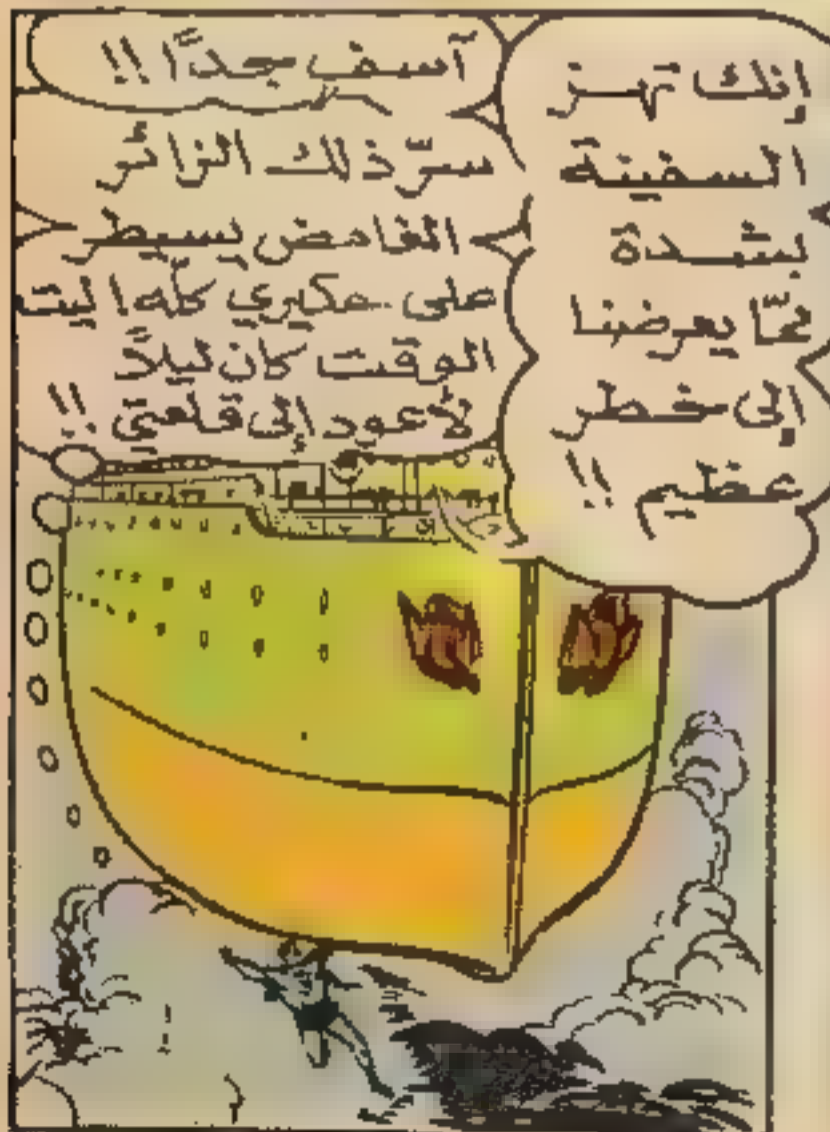 إنك تهز
السفينة
بشدة
ممّا يعرضنا
إلى خطر
عظيم !!
آسف جدًّا !!
سرّ ذلك الزائر
الغامض يسيطر
على تفكيري كلّه ! ليت
الوقت كان ليلاً
لأعود إلى قلعتي !!